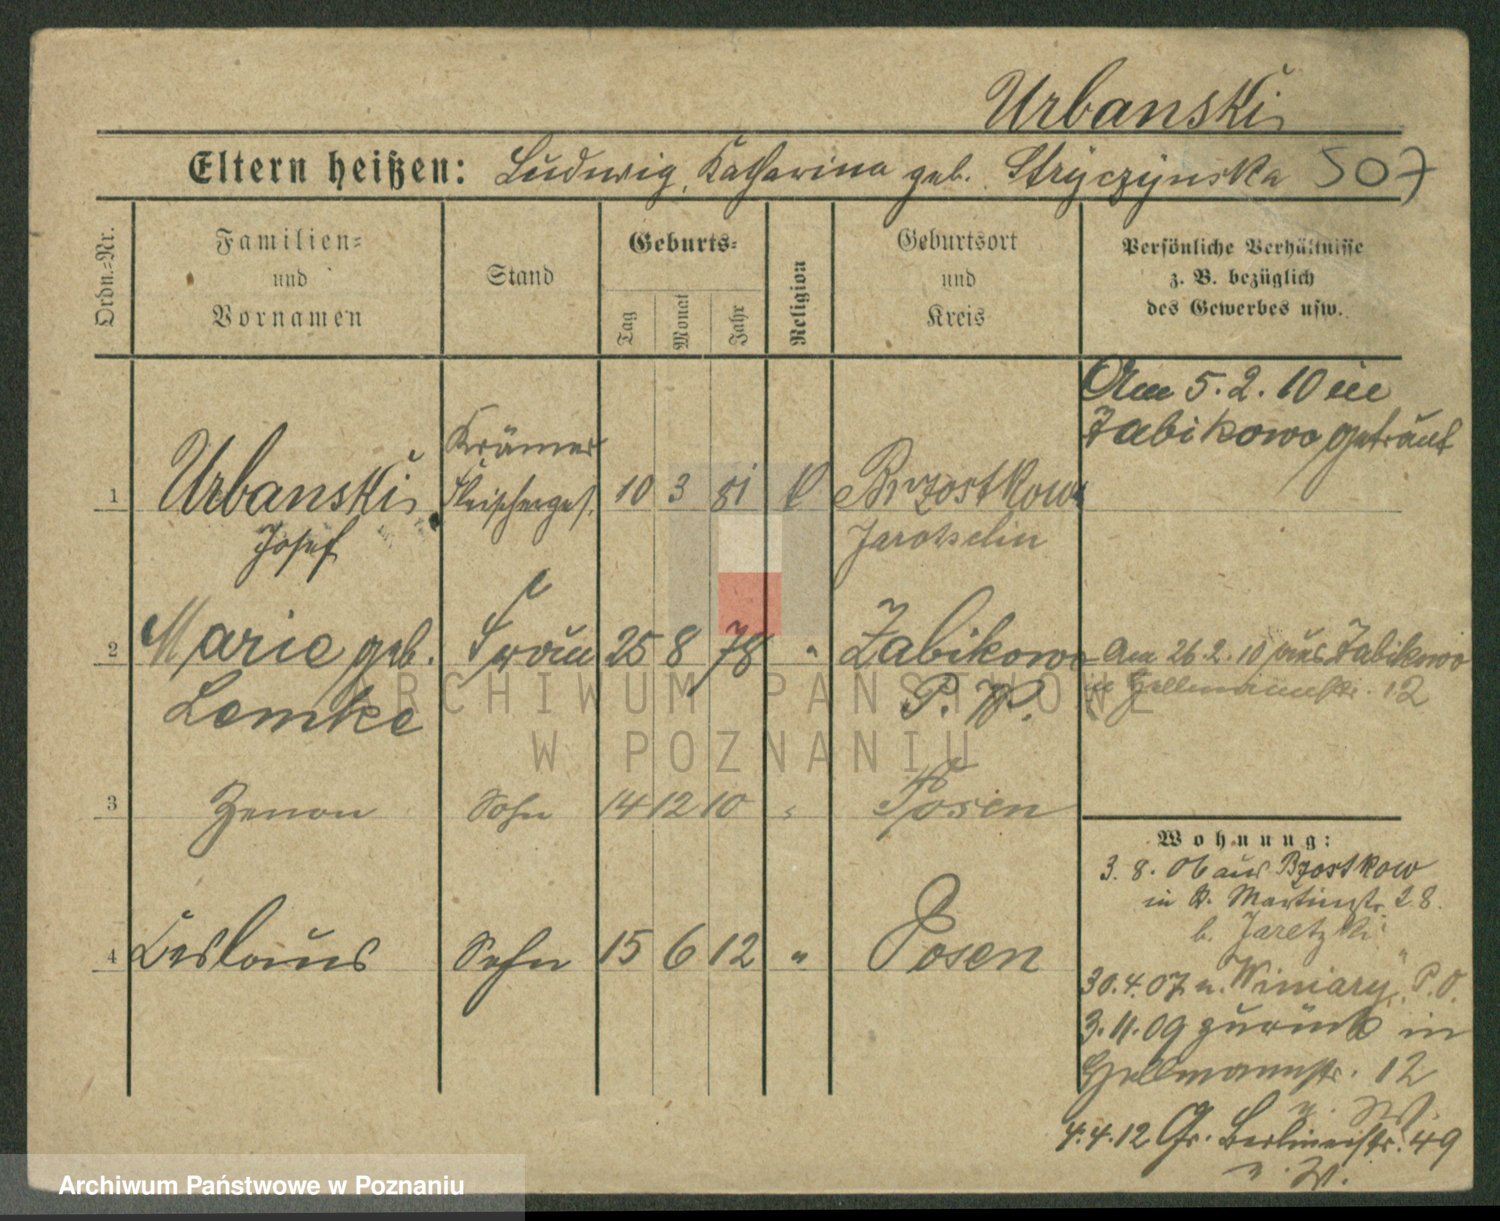 Urbanski
Eltern heißen: Ludwig, Katharina geb. Stryczynska 507
Ordn.-Nr.
Familien-
und
Vornamen
Stand
Geburts-
Tag
Monat
Jahr
Religion
Geburtsort
und
Kreis
Persönliche Verhältnisse
z. B. bezüglich
des Gewerbes usw.
Am 5. 2. 10 in
Zabikowo getraut
Krämer
1 Urbanski Fleischerges. 10 3 81 k Brzostkow
Josef Jarotschin
2 Marie geb. Frau 25 8 78 " Zabikowo Am 26. 2. 10 aus Zabikowo
Lemke P. W. 12
3 Zenon Sohn 14 12 10 " Posen
Wohnung:
3. 8. 06 aus Brzostkow
in St. Martinstr. 28.
b. Jaretzki
4 Ceslaus Sohn 15 6 12 " Posen
30. 4. 07 n. Winiary, P. O.
3. 11. 09 zurück in
12
4. 4. 12 Gr. Berlinerstr. 49
n. W.
ARCHIWUM PAŃSTWOWE
W POZNANIU
Archiwum Państwowe w Poznaniu